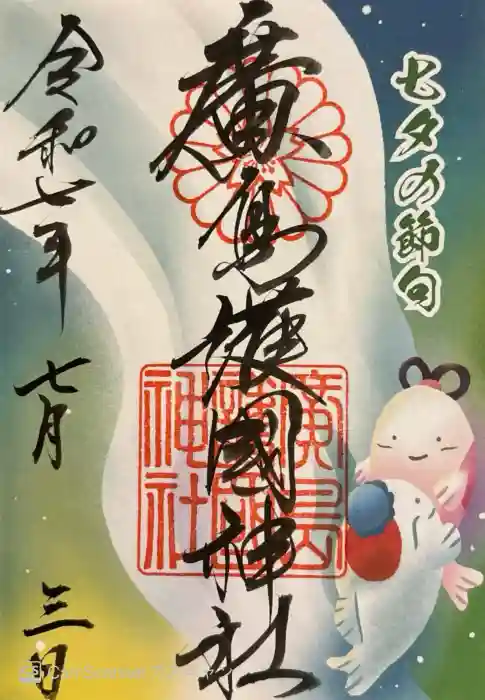 七夕の節句
廣島護國神社
廣島
護國
神社
令和七年 七月 三日
CamScanner